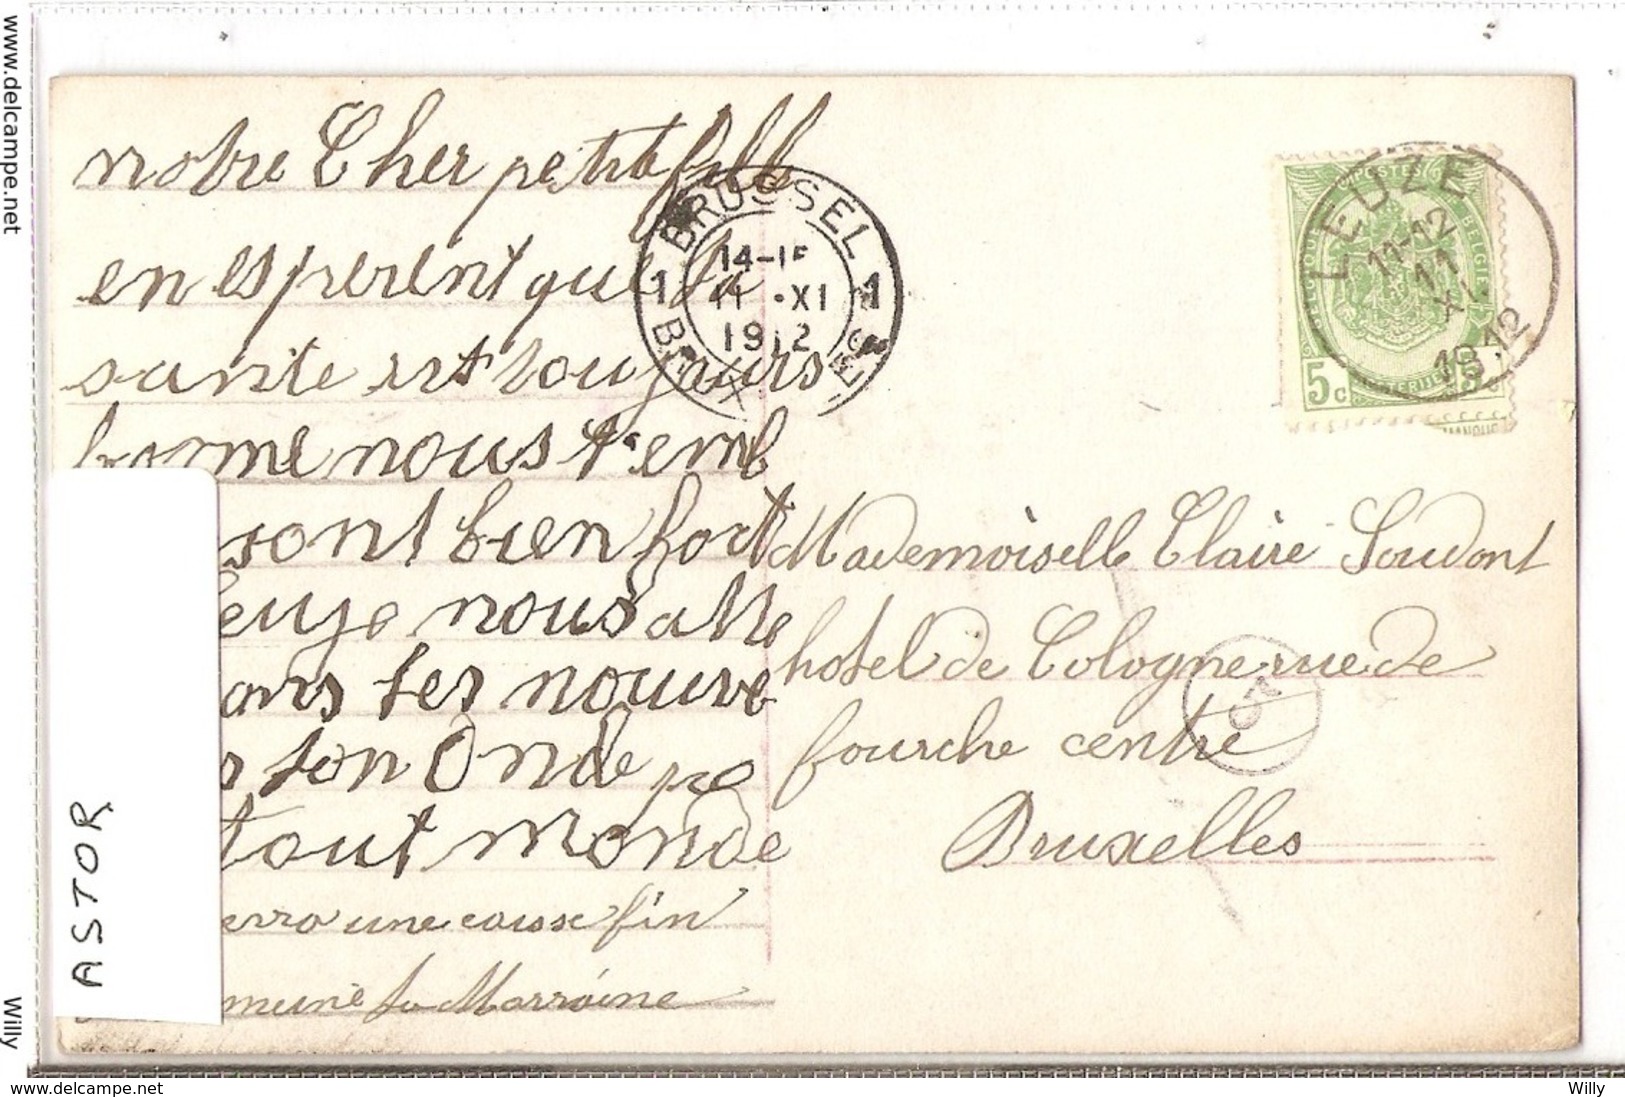 www.delcampe.net
notre Cher petite fille
en esperent que ta
sante est toujours
bonne nous t'emb
sont bien fort
leuze nous atte
ons tes nouve
ton Oncle
tout monde
erra une causse fin
Marraine
BRUSSEL
14-15
11 XI
1912
1 1
BRUXELLES
LEUZE
11-12
11
XI
1912
POSTES
BELGIQUE
BELGIE
5c
Mademoiselle Claire Soudont
hotel de Cologne rue de
fourche centre
Bruxelles
ASTOR
Willy
www.delcampe.net
Willy